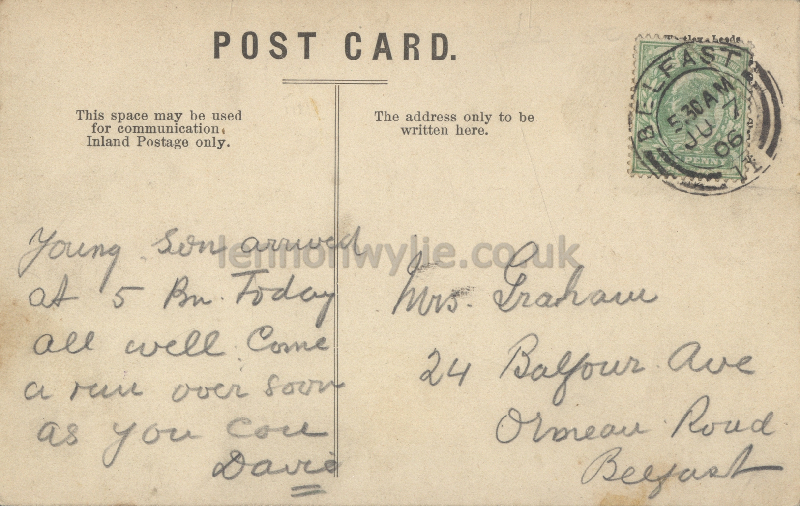 POST CARD.
This space may be used
for communication,
Inland Postage only.
The address only to be
written here.
Leeds
BELFAST
5.30 AM
JU 7
06
PENNY
lennonwylie.co.uk
Young Son arrived
at 5 Pm. Today
all well Come
a run over soon
as you Can
David
Mrs. Graham
24 Balfour Ave
Ormeau Road
Belfast